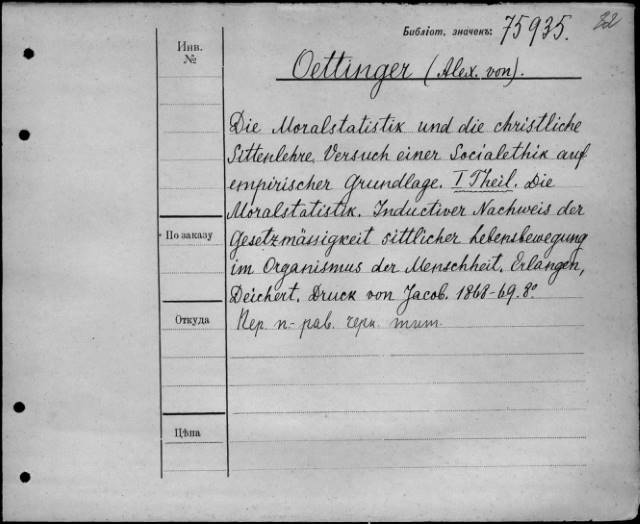 Библіот. значекъ: 75935.
Инв.
№
Oettinger (Alex. von).
Die Moralstatistik und die christliche
Sittenlehre. Versuch einer Socialethik auf
empirischer Grundlage. I Theil. Die
Moralstatistik. Inductiver Nachweis der
По заказу
Gesetzmässigkeit sittlicher Lebensbewegung
im Organismus der Menschheit. Erlangen,
Deichert. Druck von Jacob. 1868-69. 8°.
Откуда
Пер. п-
Цѣна